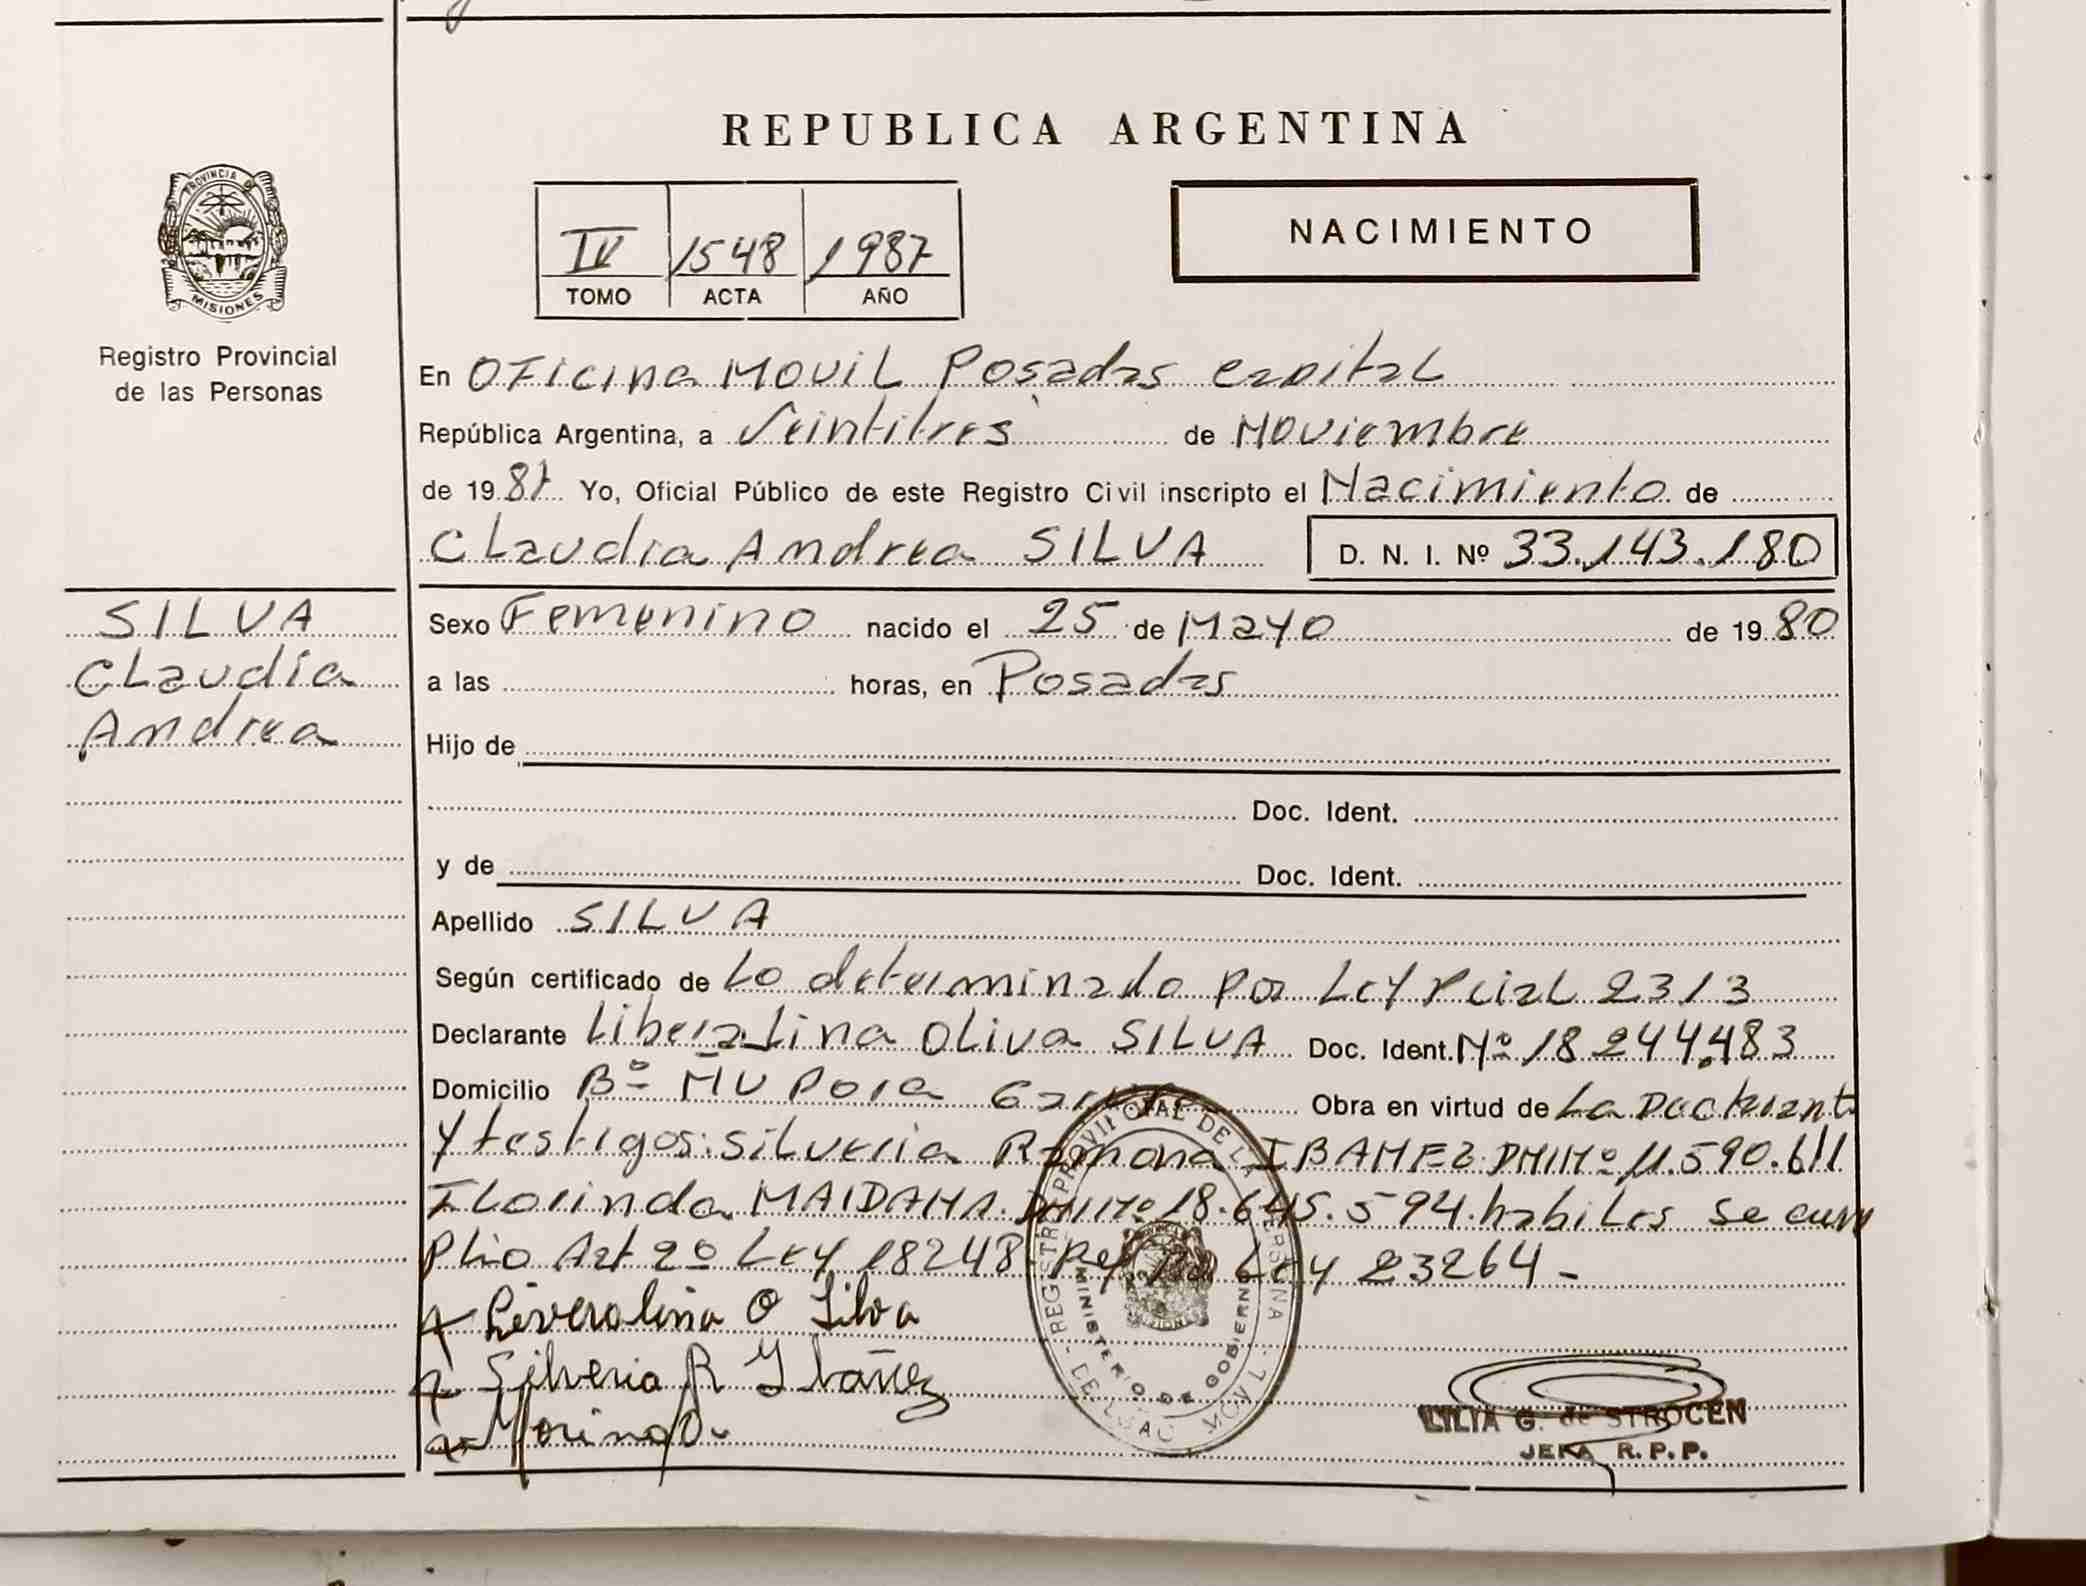 REPUBLICA ARGENTINA
PROVINCIA DE
MISIONES
Registro Provincial
de las Personas
IV 1548 1987
TOMO ACTA AÑO
NACIMIENTO
En OFicina MOVIL Posadas capital
República Argentina, a Veintitres de Noviembre
de 19 87 Yo, Oficial Público de este Registro Civil inscripto el Nacimiento de
CLaudia Andrea SILVA D. N. I. Nº 33.143.180
SILVA
CLaudia
Andrea
Sexo Femenino nacido el 25 de Mayo de 19 80
a las horas, en Posadas
Hijo de
Doc. Ident.
y de Doc. Ident.
Apellido SILVA
Según certificado de Lo determinado por Ley Pcial 2313
Declarante Liberalina Oliva SILVA Doc. Ident. Nº 18 244.483
Domicilio Bº ÑU Pora Garupa Obra en virtud de La Declarante
y testigos: Silveria Ramona IBAÑEZ DNI Nº 11.590.611
Florinda MAIDANA. DNI Nº 18.645.594. habiles se cum
plio Art 2º Ley 18248 Ley 23264 -
x Liveralina O Silva
x Silveria R Ybañez
x
REGISTRO PROVINCIAL DE LAS PERSONAS
MINISTERIO DE GOBIERNO
MOVIL
LILIA G. de STROCEN
JEFA R.P.P.